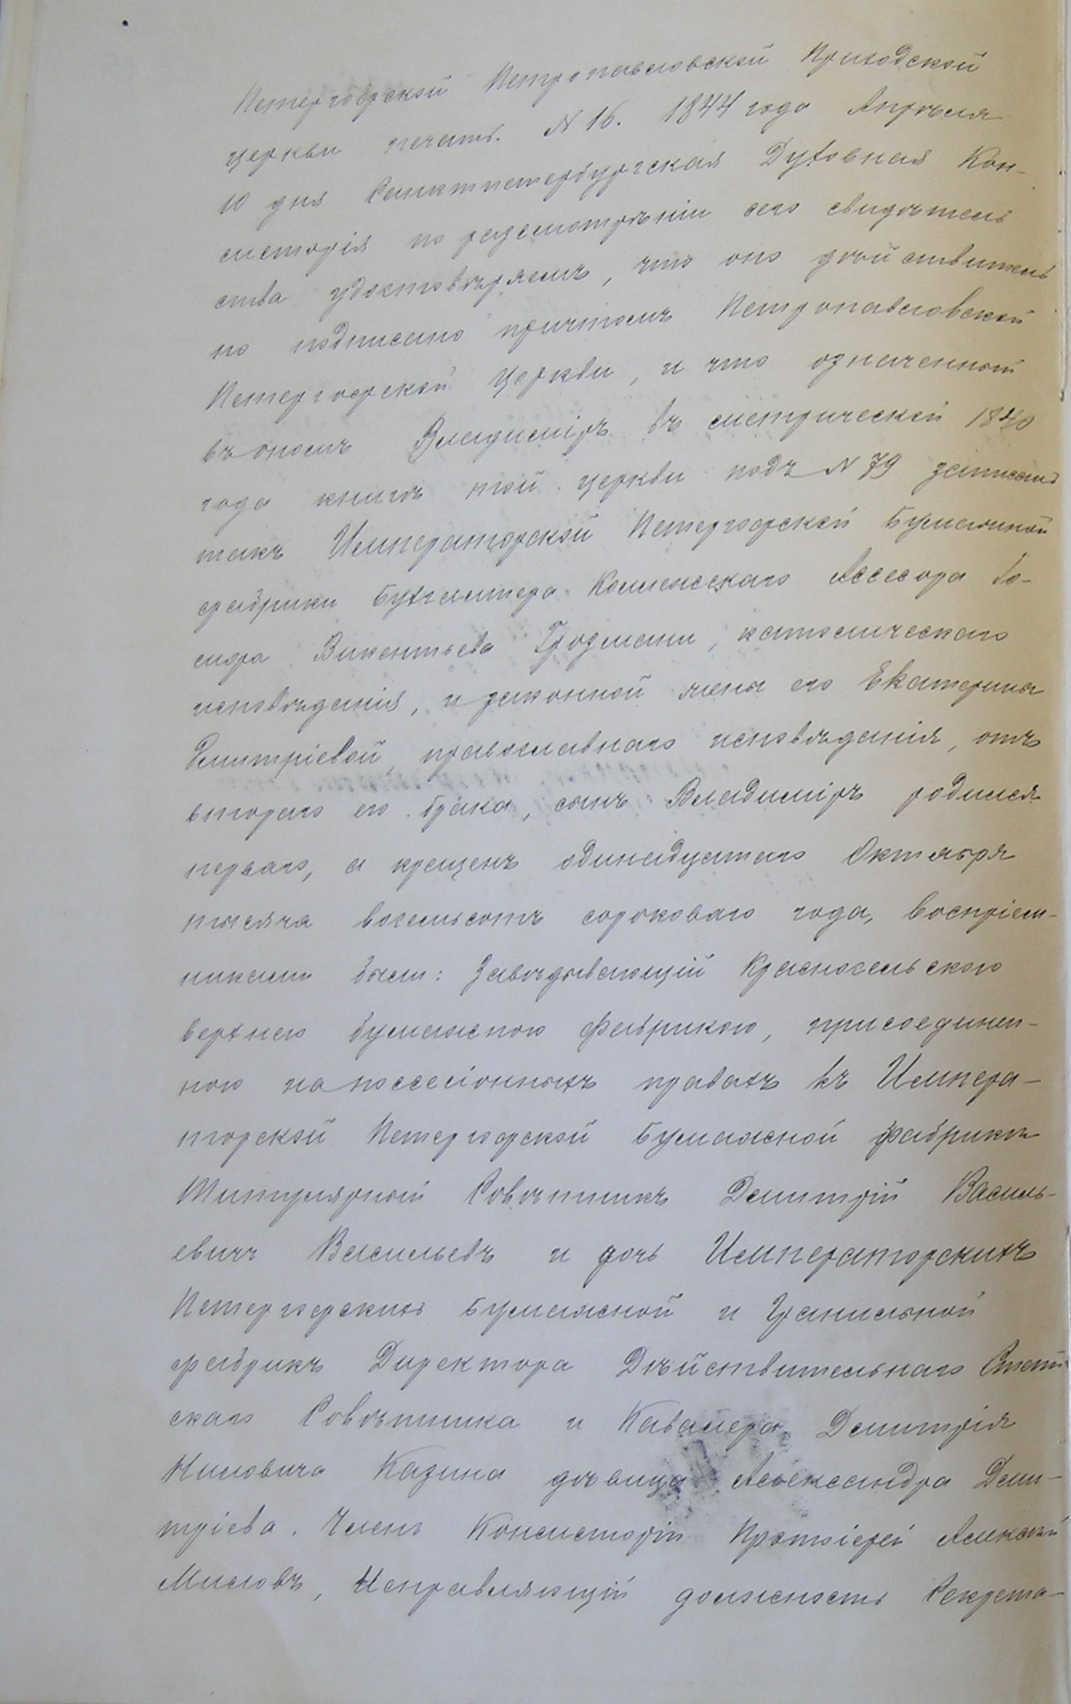 Петергофской Петропавловской Приходской
церкви печать. N 16. 1844 года Апрѣля
10 дня Санктпетербургская Духовная Кон-
систорія по разсмотрѣніи сего свидѣтель
ства удостовѣряетъ, что оно дѣйствитель
но подписано причтомъ Петропавловской
Петергофской церкви, и что означенный
въ ономъ Владиміръ въ метрической 1840
года книгѣ той церкви подъ N 79 записанъ
такъ Императорской Петергофской Бумажной
фабрики Бухгалтера Коллежскаго Ассесора
Викентьева католическаго
исповѣданія, и законной жены его Екатерины
Дмитріевой, православнаго исповѣданія, отъ
втораго его брака, сынъ Владиміръ родился
перваго, а крещенъ одинадцатаго Октября
тысяча восемьсотъ сороковаго года, воспріем-
никами были: Завѣдывающій Красносельскою
верхнею бумажною фабрикою, присоединен-
ною на поссесіонныхъ правахъ къ Импера-
торской Петергофской Бумажной фабрикѣ
Титулярный Совѣтникъ Дмитрій Василь-
евичъ Васильевъ и дочь Императорскихъ
Петергофскихъ Бумажной и Гранильной
фабрикъ Директора Дѣйствительнаго Стат
скаго Совѣтника и Кавалера Дмитрія
Ниловича Казина дѣвица Александра Дми-
тріева. Членъ Консисторіи Протоіерей Алексѣй
Маловъ, Исправляющій должность Секрета-